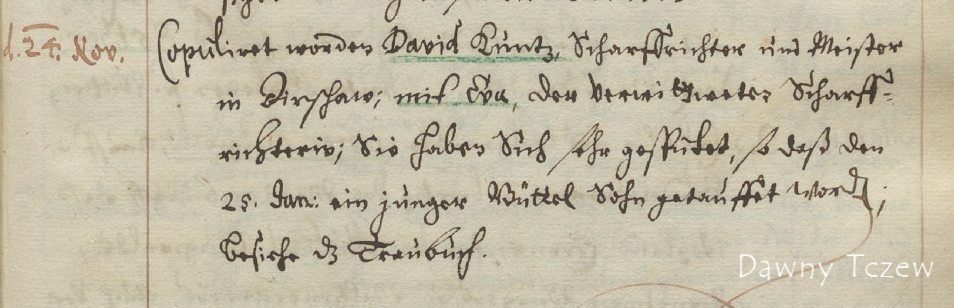 d. 24. Nov. Copuliret worden David Kuntz, Scharffrichter und Meister
in Dirschaw; mit Eva, der verwittweten Scharff-
richterin; Sie haben Sich sehr gesputet, so daß den
25. Jan: ein junger Büttel Sohn getauffet word;
besiehe dz Traubuch.
Dawny Tczew